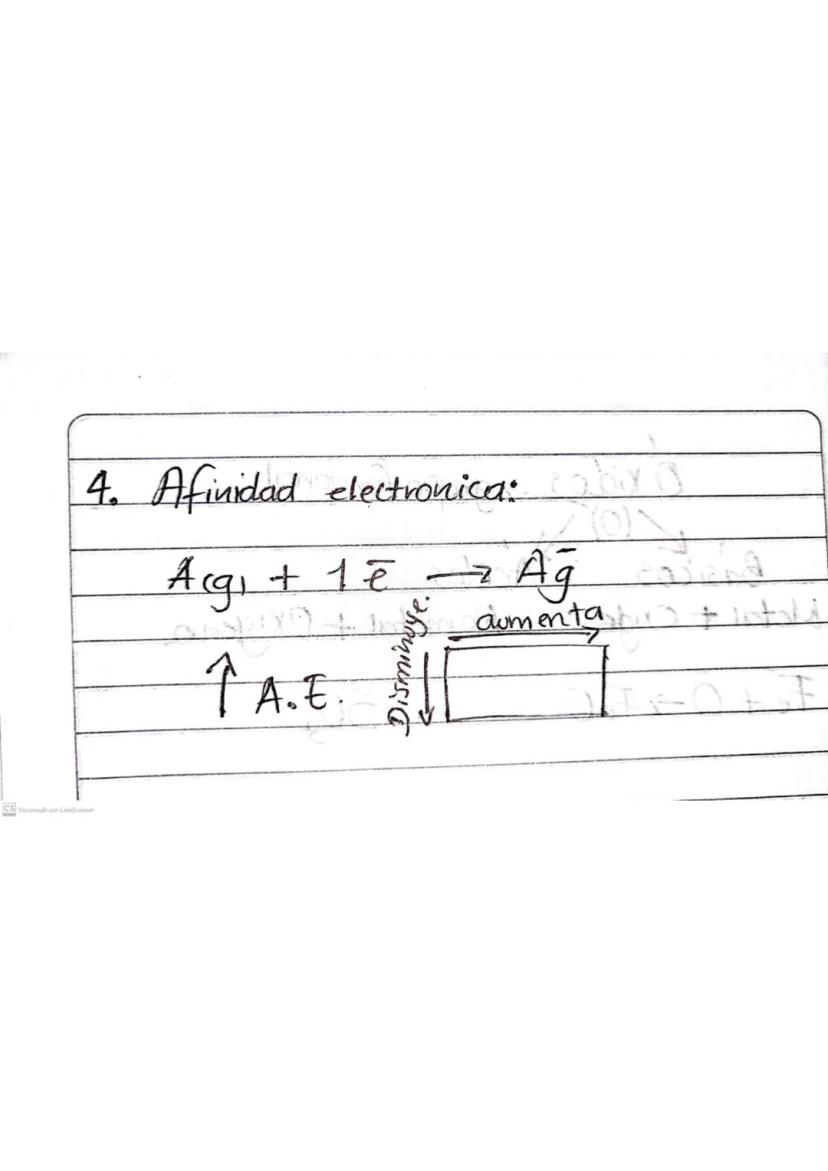 4. Afinidad electronica:
A(g) + 1 ē → Aḡ
Disminuye.
aumenta
↑ A.E.
CS Escaneado con CamScanner